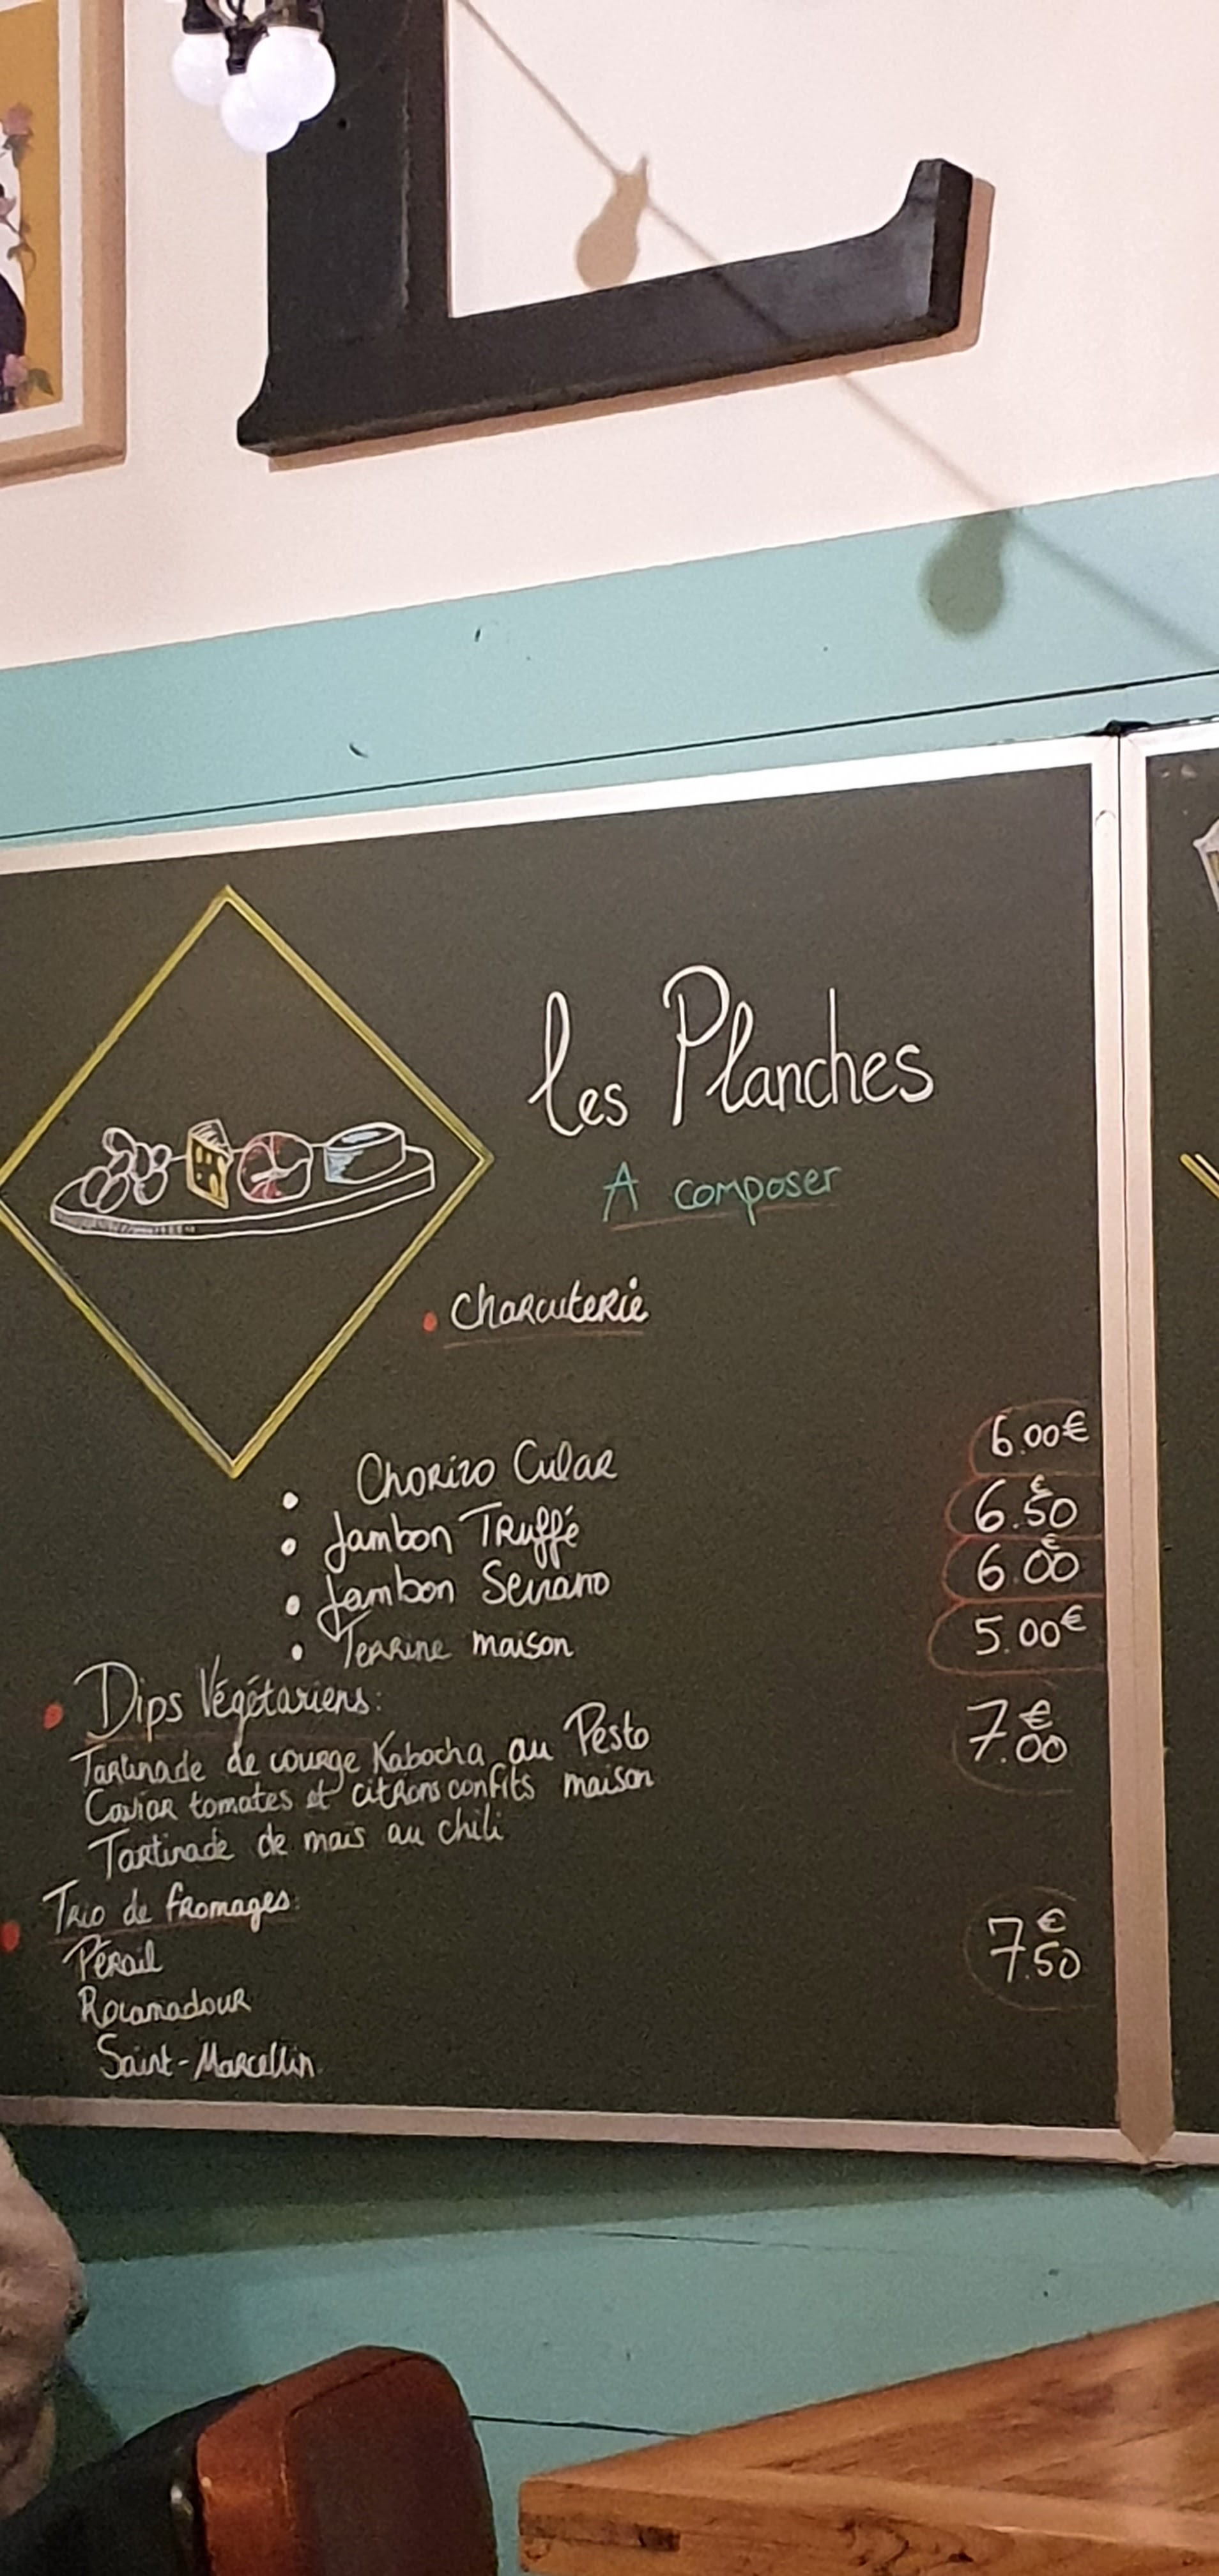 L
Les Planches
A composer
Charcuterie
Chorizo Cular 6.00€
Jambon Truffé 6.50€
Jambon Serrano 6.00€
Terrine maison 5.00€
Dips Végétariens: 7.00€
Tartinade de courge Kabocha au Pesto
Caviar tomates et citrons confits maison
Tartinade de maïs au chili
Trio de fromages: 7.50€
Pérail
Rocamadour
Saint-Marcellin